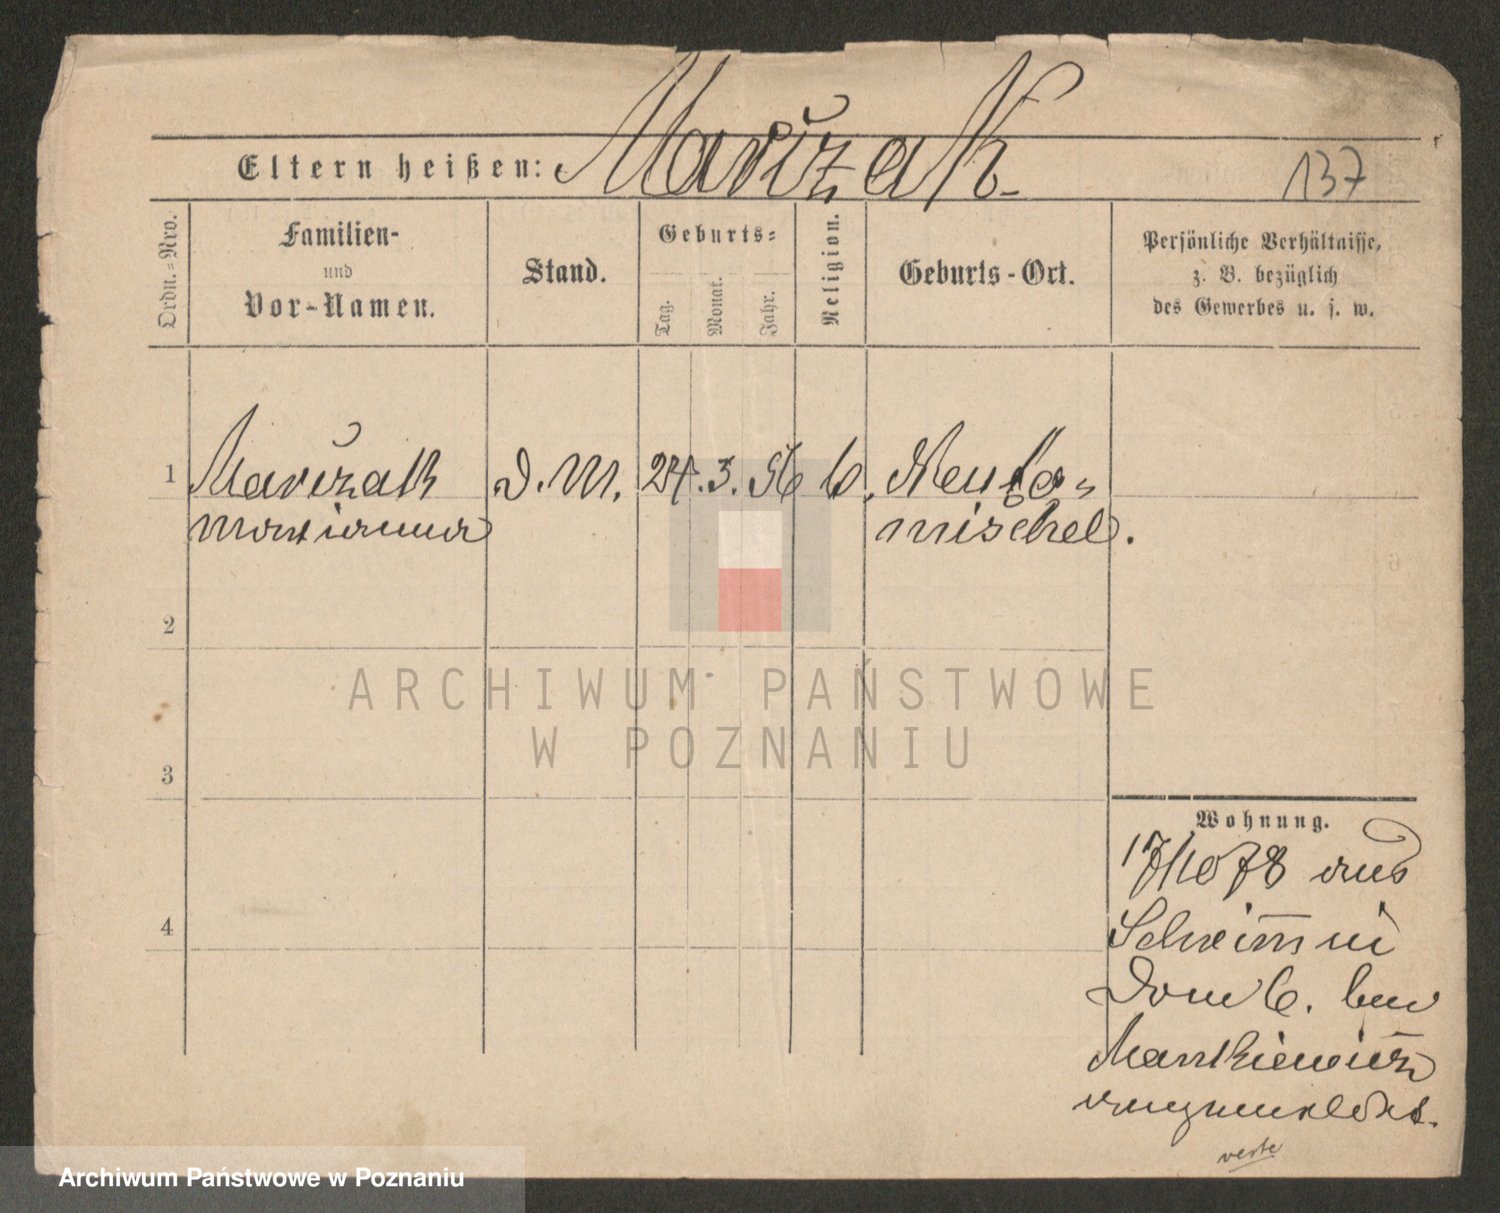 Eltern heißen: Marizak
137
Ordn.-Nro.
Familien-
und
Vor-Namen.
Stand.
Geburts-
Tag.
Monat.
Jahr.
Religion.
Geburts-Ort.
Persönliche Verhältnisse,
z. B. bezüglich
des Gewerbes u. s. w.
1 Marizak D. M. 24. 3. 56 C. Neuto-
Marianna mischel.
2
3
4
Wohnung.
17/10 78 aus
Dom 6. bei
angemeldet.
verte
ARCHIWUM PAŃSTWOWE
W POZNANIU
Archiwum Państwowe w Poznaniu